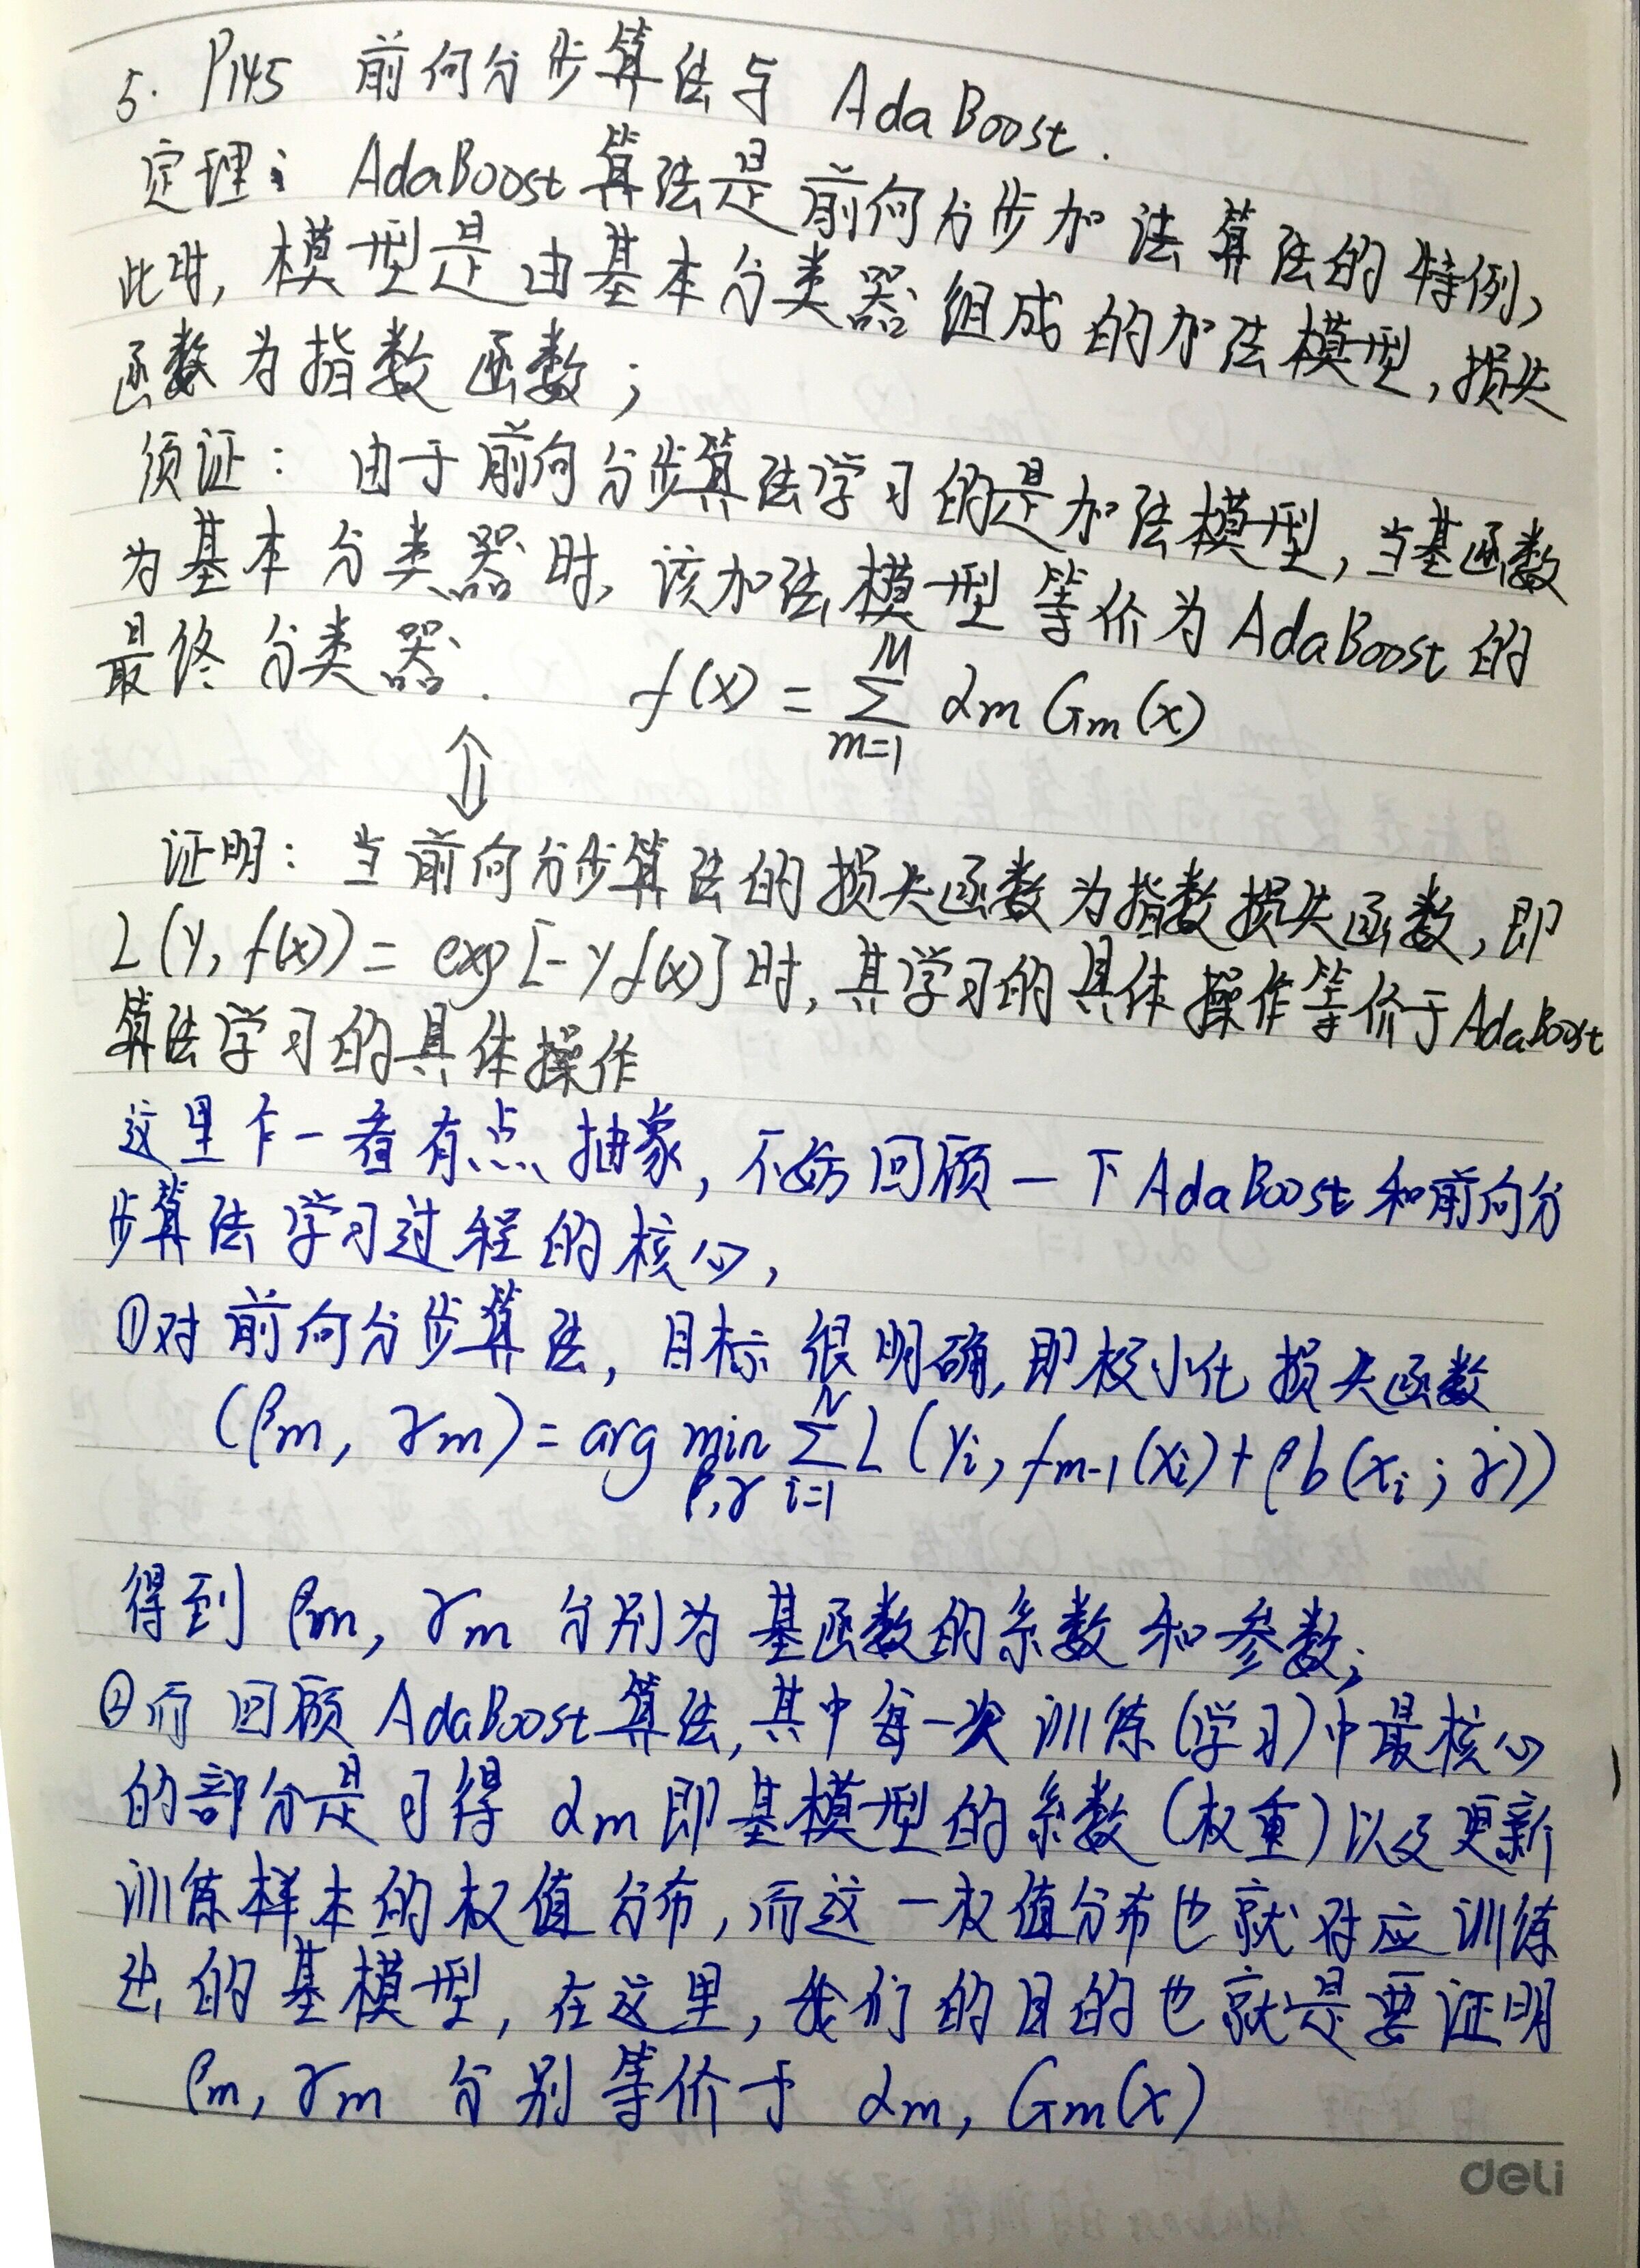 5. P145 前向分步算法与 AdaBoost.
定理: AdaBoost算法是前向分步加法算法的特例,
此时, 模型是由基本分类器组成的加法模型, 损失
函数为指数函数;
须证: 由于前向分步算法学习的是加法模型, 当基函数
为基本分类器时, 该加法模型等价为AdaBoost的
最终分类器. f(x) = \sum_{m=1}^{M} α_m G_m(x)
⇕
证明: 当前向分步算法的损失函数为指数损失函数, 即
L(y, f(x)) = exp[-yf(x)]时, 其学习的具体操作等价于AdaBoost
算法学习的具体操作
这里乍一看有点抽象, 不妨回顾一下AdaBoost和前向分
步算法学习过程的核心,
①对前向分步算法, 目标很明确, 即极小化损失函数
(β_m, γ_m) = arg min_{β,γ} \sum_{i=1}^{N} L(y_i, f_{m-1}(x_i) + βb(x_i; γ))
得到 β_m, γ_m 分别为基函数的系数和参数;
②而回顾AdaBoost算法, 其中每一次训练(学习)中最核心
的部分是习得 α_m 即基模型的系数(权重)以及更新
训练样本的权值分布, 而这一权值分布也就对应训练
出的基模型, 在这里, 我们的目的也就是要证明
β_m, γ_m 分别等价于 α_m, G_m(x)
deli